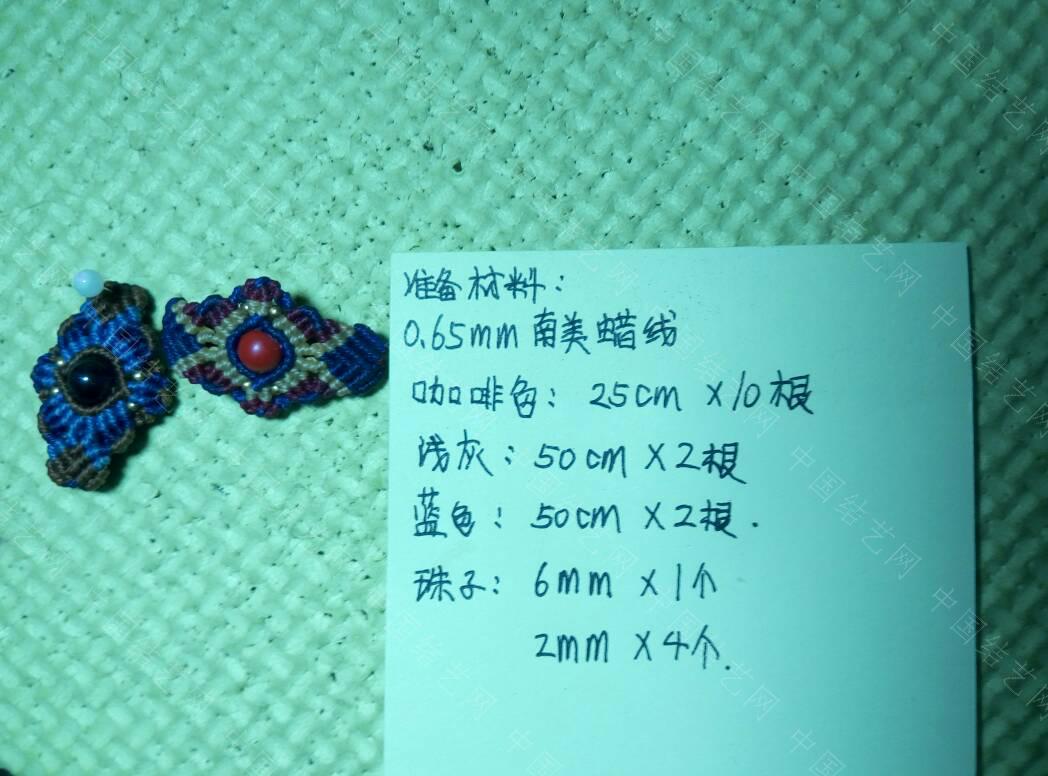 准备材料：
0.65mm 南美蜡线
咖啡色： 25cm ×10根
浅灰：50cm ×2根
蓝色：50cm ×2根.
珠子： 6mm ×1个
2mm ×4个.
中国结艺网